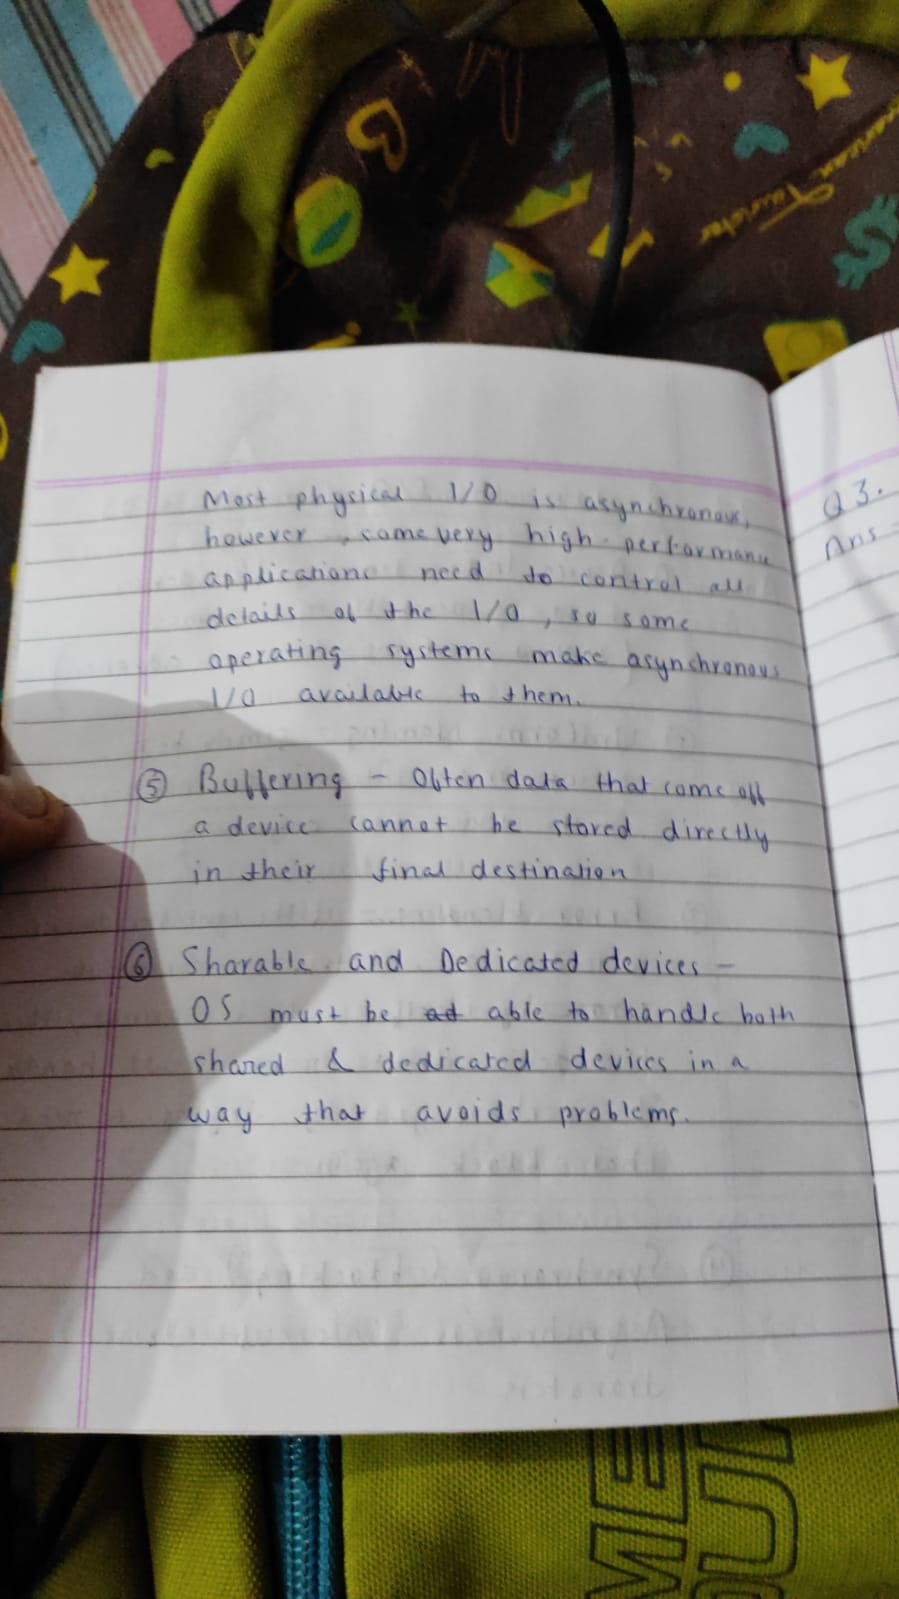 Most physical I/O is asynchronous,
however, some very high performance
applications need to control all
details of the I/O, so some
operating systems make asynchronous
I/O available to them.
⑤ Buffering - Often data that come off
a device cannot be stored directly
in their final destination
⑥ Sharable and Dedicated devices -
OS must be able to handle both
shared & dedicated devices in a
way that avoids problems.
Q3.
Ans -